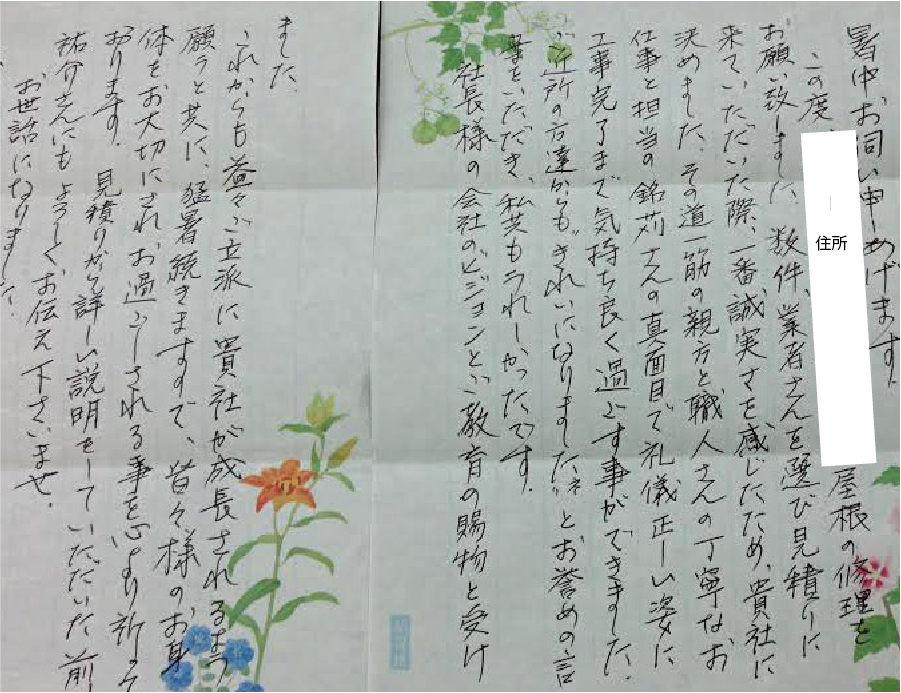 暑中お伺い申しあげます。
この度、
住所
屋根の修理を
お願い致しました。数件、業者さんを選び見積りに
来ていただいた際、一番、誠実さを感じたため、貴社に
決めました。その道一筋の親方と職人さんの丁寧なお
仕事と担当の銘苅さんの真面目で礼儀正しい姿に
工事完了まで気持ち良く過ごす事ができました。
ご近所の方達からも“きれいになりましたネ”とお誉めの言
葉をいただき、私共もうれしかったです。
社長様の会社の、ビジョンとご教育の賜物と受け
ました。
これからも益々ご立派に貴社が成長されるよう
願うと共に、猛暑続きますので、皆々様のお身
体をお大切にされ、お過ごしされる事を心より祈って
おります。見積りから詳しい説明をしていただいた前
祐介さんにもよろしくお伝え下さいませ。
お世話になりました。